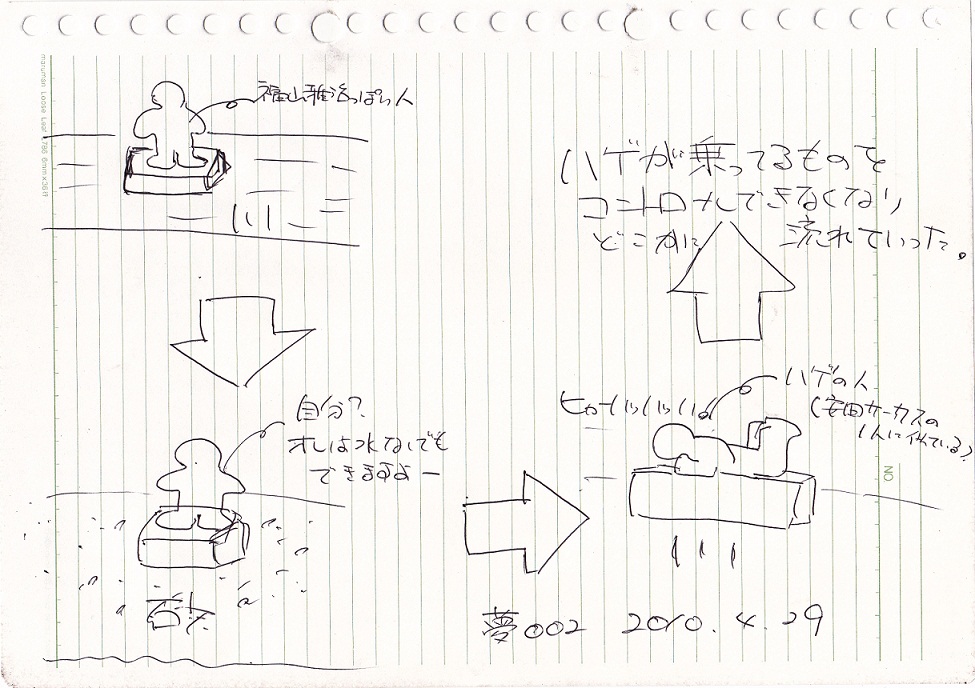 福山雅治っぽい人
川
自分?
オレは水なしでも
できますよー
ヒャーハッハッハ
ハゲの人
(安田サーカスの
1人に似ている?)
ハゲが乗ってるものを
コントロールできなくなり
どこかに流れていった。
夢002 2010.4.29
maruman Loose Leaf
NO